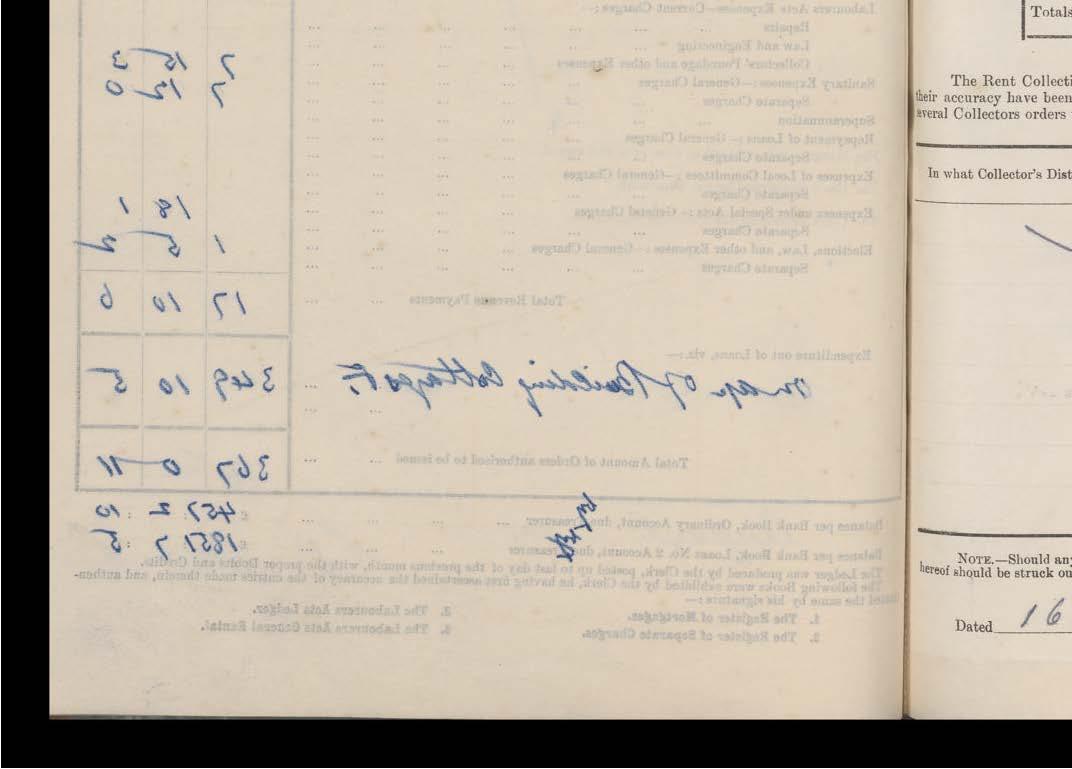 Labourers Acts Expenses—Current Charges:—
Repairs
Law and Engineering
Collectors' Poundage and other Expenses 7 15 3
Sanitary Expenses:—General Charges 7 12 0
Separate Charges
Superannuation
Repayment of Loans:—General Charges
Separate Charges
Expenses of Local Committees:—General Charges
Separate Charges 18 1
Expenses under Special Acts:—General Charges
Separate Charges 1 5 2
Elections, Law, and other Expenses:—General Charges
Separate Charges
Total Revenue Payments 17 10 6
Expenditure out of Loans, viz.:—
Building Cottages 349 10 5
Total Amount of Orders authorised to be issued 367 0 11
Balance per Bank Book, Ordinary Account, due Treasurer £457: 2: 10
Balance per Bank Book, Loans No. 2 Account, due Treasurer 1851: 7: 5
The Ledger was produced by the Clerk, posted up to last day of the previous month, with the proper Debits and Credits.
The following Books were exhibited by the Clerk, he having first ascertained the accuracy of the entries made therein, and authen-
ticated the same by his signature:—
1. The Register of Mortgages.
2. The Register of Separate Charges.
3. The Labourers Acts Ledger.
4. The Labourers Acts General Rental.
Totals
The Rent Collecti
their accuracy have been
several Collectors orders
In what Collector's Dist
NOTE.—Should any
hereof should be struck ou
Dated 16